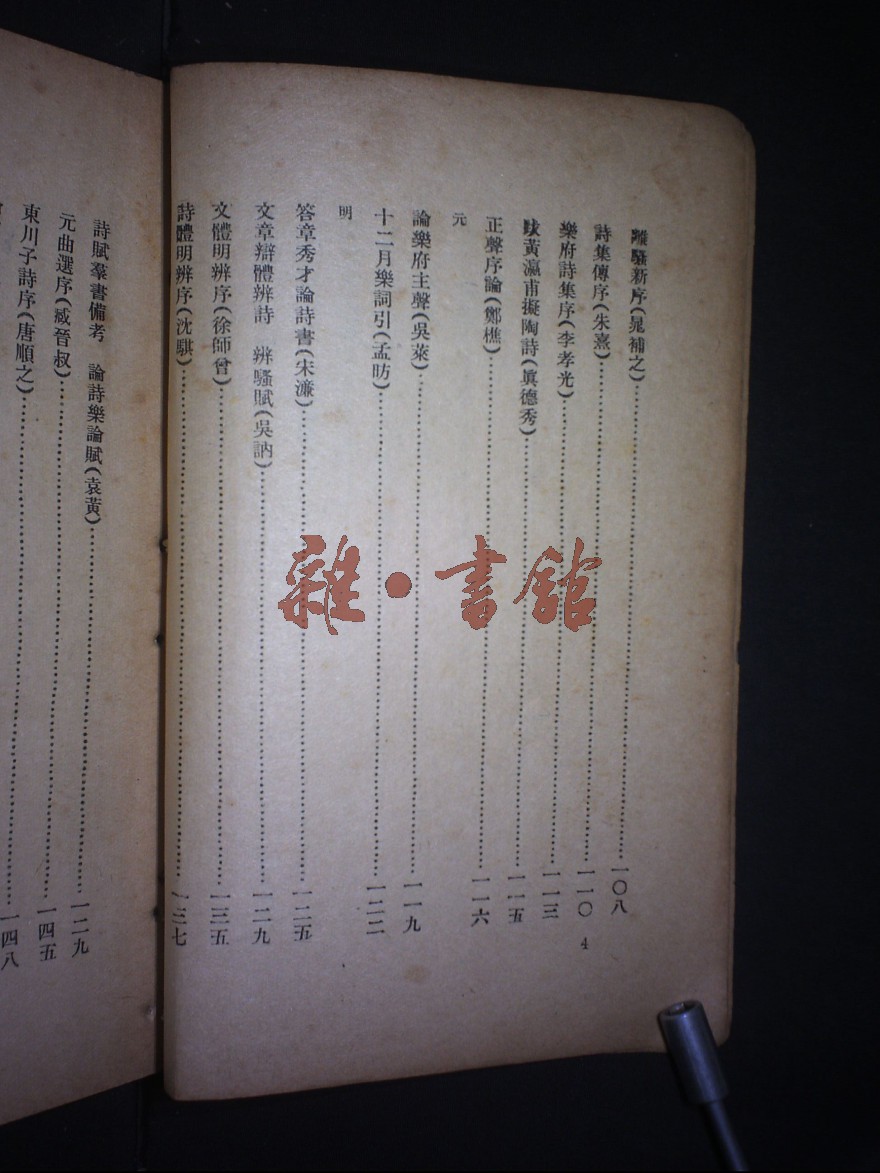 離騷新序(晁補之)……一〇八
詩集傳序(朱熹)……一一〇
樂府詩集序(李孝光)……一一三
跋黃瀛甫擬陶詩(眞德秀)……一一五
正聲序論(鄭樵)……一一六
元
論樂府主聲(吳萊)……一一九
十二月樂詞引(孟昉)……一二二
明
答章秀才論詩書(宋濂)……一二五
文章辯體辨詩 辨騷賦(吳訥)……一二九
文體明辨序(徐師曾)……一三五
詩體明辨序(沈騏)……一三七
4
詩賦羣書備考 論詩樂論賦(袁黃)……一二九
元曲選序(臧晉叔)……一四五
東川子詩序(唐順之)……一四八
雜•書館